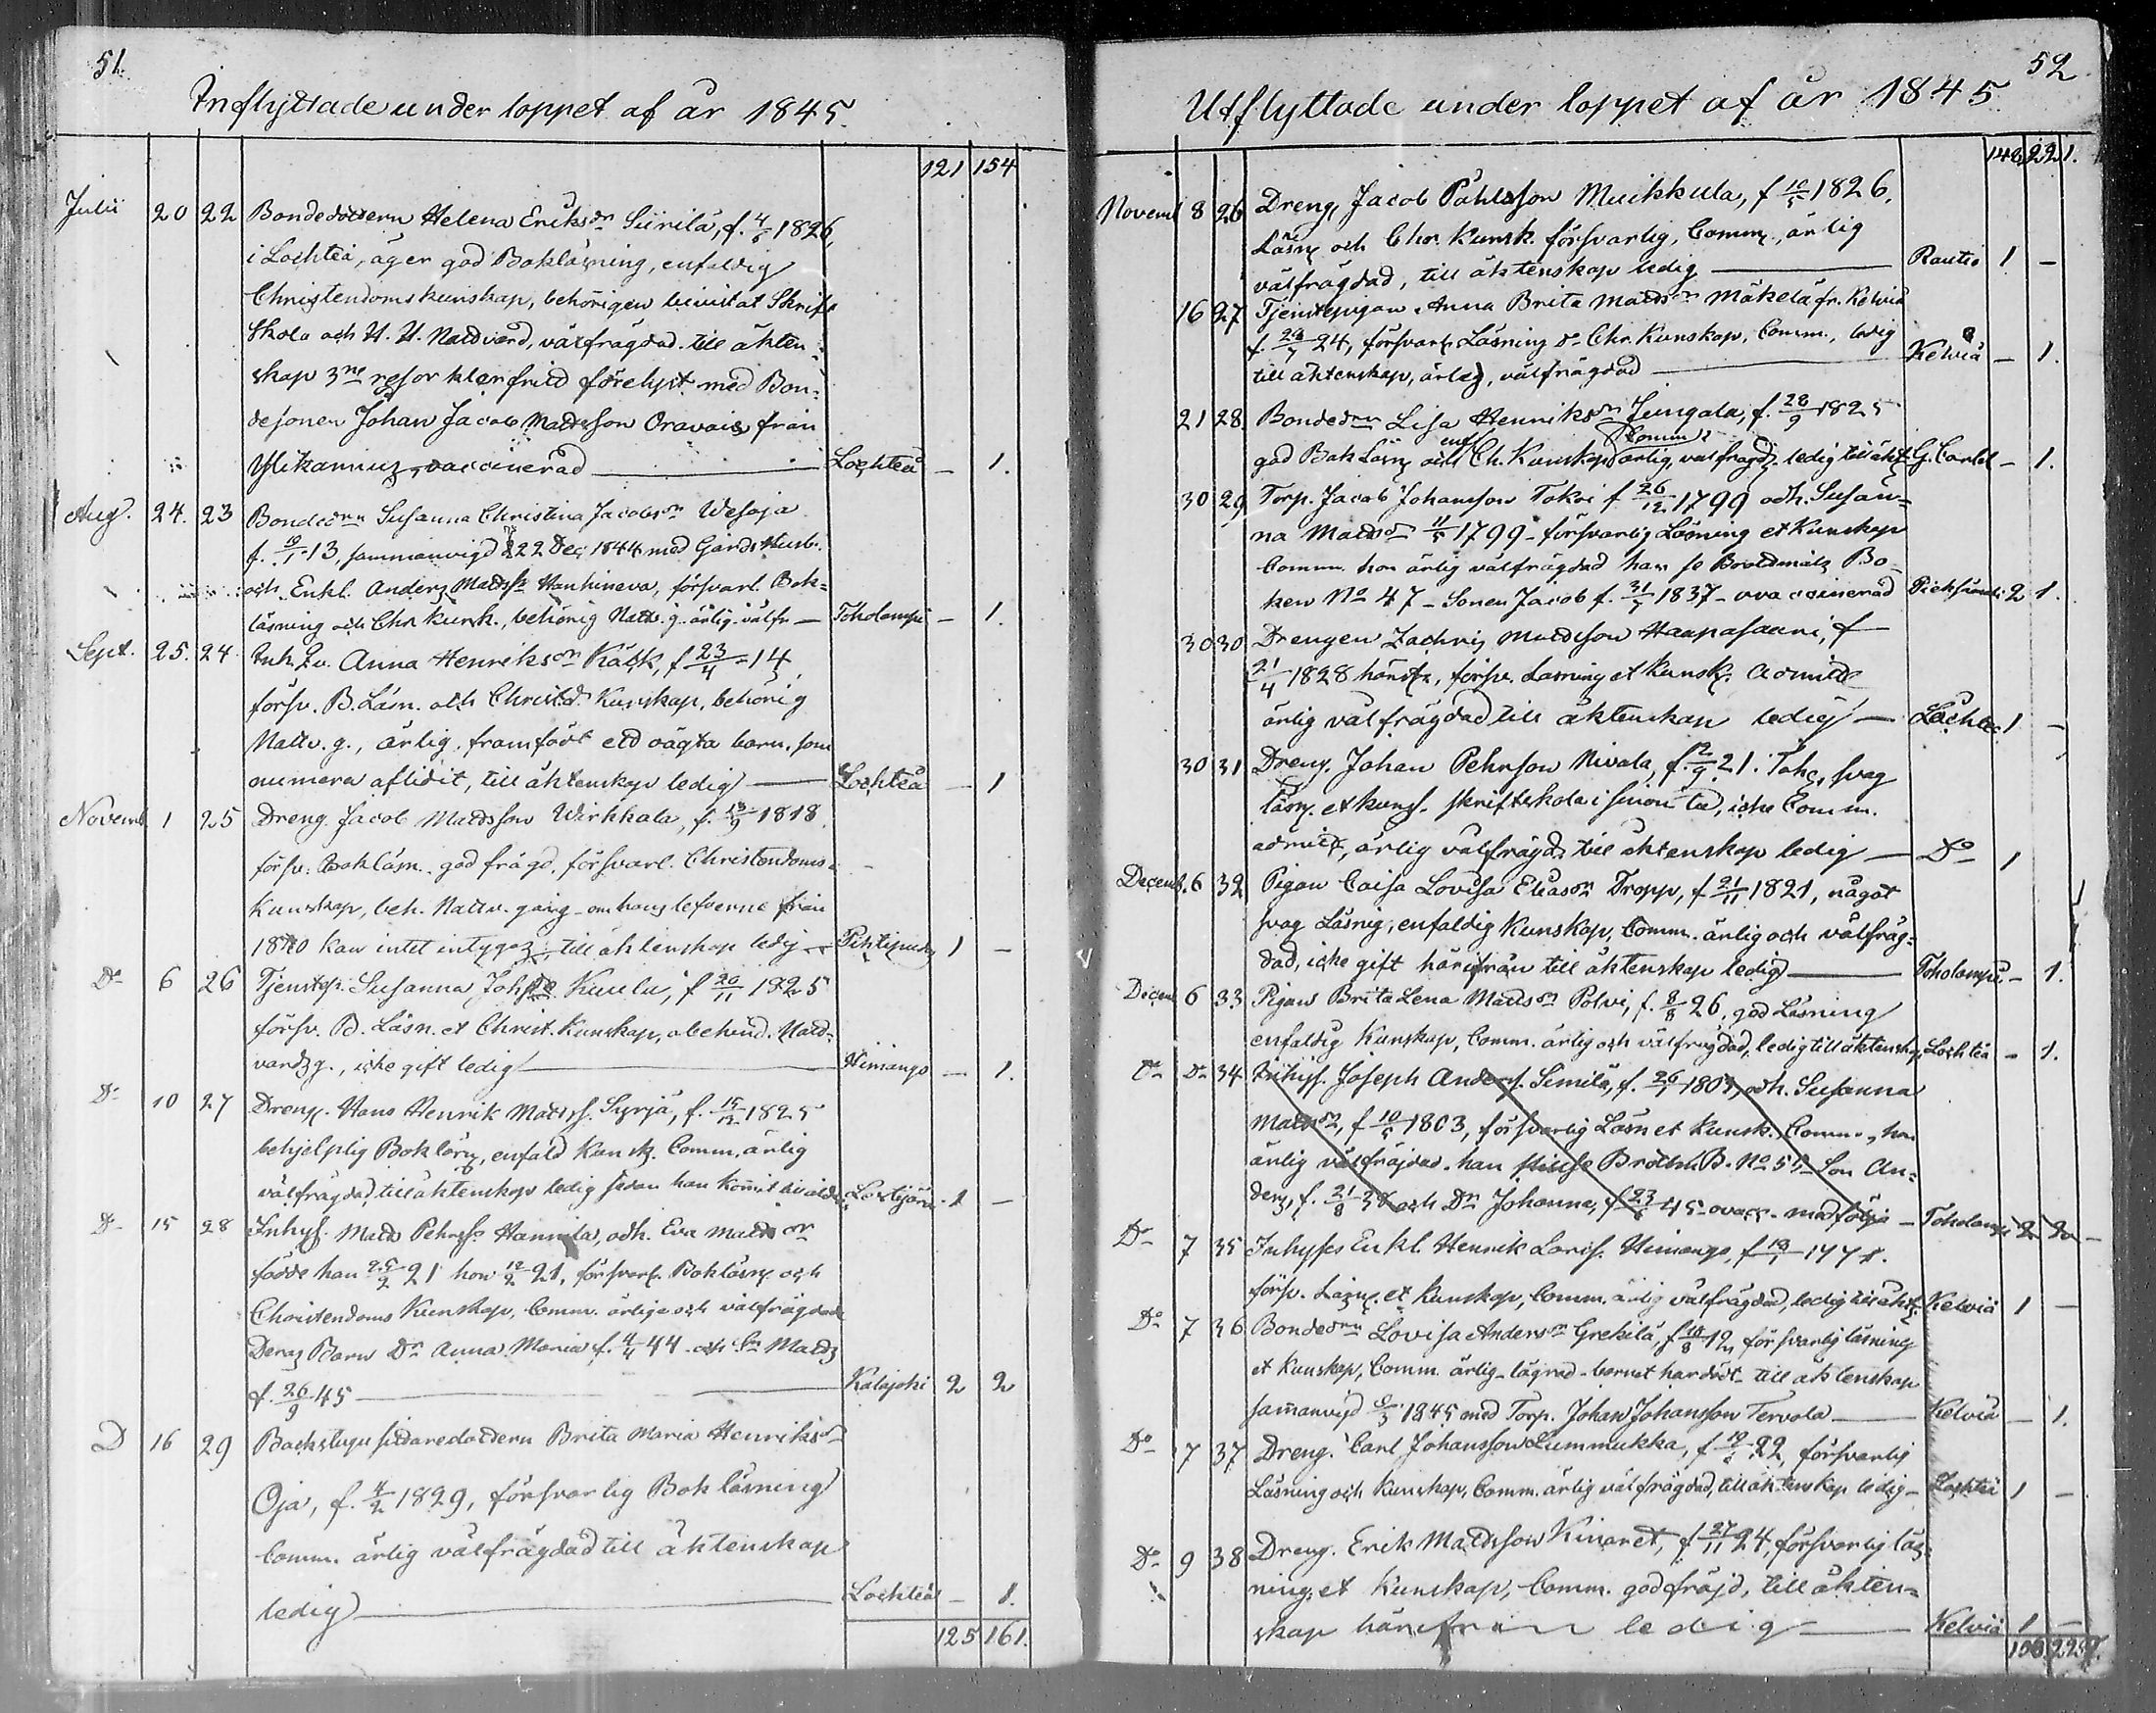 51.
Inflyttade under loppet af år 1845.
121 154
Julii 20 22 Bondedottern Helena Eriksdr Siirilä, f. 4/5 1826,
i Lochteå, äger god Bokläsning, enfaldig
Christendomskunskap, behörigen bevistat Skrift
skola och H. H. Nattvard, välfrägdad. till äkten-
skap 3ne resor förelyst med Bon-
desonen Johan Jacob Mattsson Oravais från
Ylikannus, vaccinerad Lochteå - 1.
Aug. 24. 23 Bondedrn Susanna Christina Jacobsdr Wesoja
f. 19/1 13, sammanvigd 22 Dec 1844 med Gårds Husb.
och Enkl. Anders Mattss. Hanhineva, försvarl. Bok-
läsning och Chr. kunsk., behörig Nattv. g. ärlig. välfr - Toholampi - 1.
Sept. 25. 24 Inh. Qv. Anna Henriksdr Kätk, f 23/4 14,
försv. B. Läsn. och Christd. Kunskap, behörig
Nattv. g., ärlig. framfödt ett oägta barn, som
numera aflidit, till äktenskap ledig Lochteå - 1
Novemb. 1 25 Dreng. Jacob Mattsson Wirkkala, f. 13/9 1818.
försv. Bokläsn. god frägd. försvarl. Christendoms-
kunskap, beh. Nattv. gång - om hans lefverne från
1840 kan intet intygas, till äktenskap ledig Pihtipudas 1 -
Do 6 26 Tjenstep. Susanna Johsdr Kuula, f 20/11 1825
försv. B. Läsn. et Christ. Kunskap, obehind. Natt-
vards g., icke gift ledig Himango - 1.
Do 10 27 Dreng. Hans Henrik Matts. Syrjä, f. 15/12 1825
behjelplig Bokläsn, enfald Kunsk. Comm. ärlig
välfrägdad, till äktenskap ledig sedan han kommit till ålder 1 -
D- 15 28 Inhys. Matts Pehrss. Hannila, och H. Eva Mattsdr
födde han 25/2 21 hon 12/2 21, försvarl. Bokläsn och
Christendoms Kunskap, Comm. ärlige och välfrägdade
Deras Barn Dr Anna Maria f. 4/4 44 och Sn Matts
f. 26/9 45 Kalajoki 2 2
D 16 29 Backstugusittaredottern Brita Maria Henriksdr
Oja, f. 4/2 1829, försvarlig Bokläsning
Comm. ärlig välfrägdad till äktenskap
ledig Lochteå - 1.
125 161.
52.
Utflyttade under loppet af år 1845.
148 221.
Novemb 8 26 Dreng. Jacob Påhlsson Muikkula, f 10/5 1826,
Läsn och Chr. Kunsk. försvarlig, Comm., ärlig
välfrägdad, till äktenskap ledig Rautio 1 -
16 27 Tjenstepigan Anna Brita Mattsdr Mäkelä fr. Kelviå
f. 24, försvarl. Läsning o. Chr. Kunskap, Comm., ledig
till äktenskap, ärlig, välfrägdad Kelviå - 1.
21 28. Bondedrn Lisa Henriksdr Jungala, f. 28/9 1825
god Bok Läsn och enf. Ch. Kunskap Comm. ärlig, välfrägd. ledig till äkt. G. Carleb - 1.
30 29 Torp. Jacob Johansson Tokoi f 26/12 1799 och H. Susan-
na Mattsdr 11/5 1799 - försvarlig Läsning et Kunskap
Comm. hon ärlig välfrägdad han se Brottmåls Bo-
ken No 47 - Sonen Jacob f. 31/7 1837 - ovaccinerad 2 1.
30 30 Drengen Zachris Mattsson Haapasaari, f
21/4 1828 försv. Läsning et Kunsk. admitt
ärlig välfrägdad till äktenskap ledig - Lochteå 1 -
30 31 Dreng. Johan Pehrsson Nivala, f. 2/9 21. svag
läsn. et kunsk. skriftskola icke Comm.
admitt, ärlig välfrägd. till äktenskap ledig - Do 1
Decemb. 6 32 Pigan Caisa Lovisa Eliasdr Dropp, f 21/11 1821, något
svag Läsnig, enfaldig Kunskap, Comm. ärlig och välfräg-
dad, icke gift härifrån till äktenskap ledig Toholampi - 1.
Decem 6 33 Pigan Brita Lena Mattsdr Polvi, f. 8/8 26, god Läsning
enfaldig Kunskap, Comm. ärlig och välfrägdad, ledig till äktenskap Lochteå - 1.
Do Do 34 Inhys. Joseph Anders. Similä, f. 26/1 180, och H. Susanna
Mattsdr, f 10/5 1803, försvarlig Läsn et Kunsk. Comm., hon
ärlig välfräjdad. han Brottm. B. No Son An-
ders, f. 21/8 och Dr Johanna, f 23/ 45 ovacc. medfölja - Toholampi 2 2 -
Do 7 35 Inhyses Enkl. Henrik Lars. Himango,
försv. Läsn. et Kunskap, Comm. ärlig välfrägdad, ledig till äkt. Kelviå 1 -
Do 7 36 Bondedrn Lovisa Andersdr Grekilä, f 18/8 försvarlig läsning
et Kunskap, Comm. ärlig - lägrad - barnet har dödt - till äktenskap
sammanvigd 1845 med Torp. Johan Johansson Tervola Kelviå - 1.
Do 7 37 Dreng. Carl Johansson Lummukka, f 22, försvarlig
Läsning och Kunskap, Comm. ärlig välfrägdad, till äktenskap ledig - Lochteå 1 -
Do 9 38 Dreng. Erik Mattsson Kinaret, f 27/11 24, försvarlig läs-
ning et Kunskap, Comm. god fräjd, till äkten-
skap härifrån ledig Kelviå 1 -